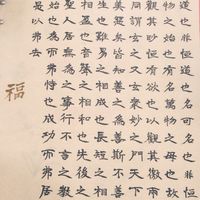 道也非恒道也名可名也非恒
物之始也有名萬物之母也故
觀其眇恒有欲也以觀其徼兩
同謂玄之又玄眾妙之門天下
美惡矣皆知善之為善斯不善
生也難易之相成也長短之相
相盈也音聲之相和也先後之
聖人居無為之事行不言之教
始也為而弗恃也成功而弗居
是以弗去
福